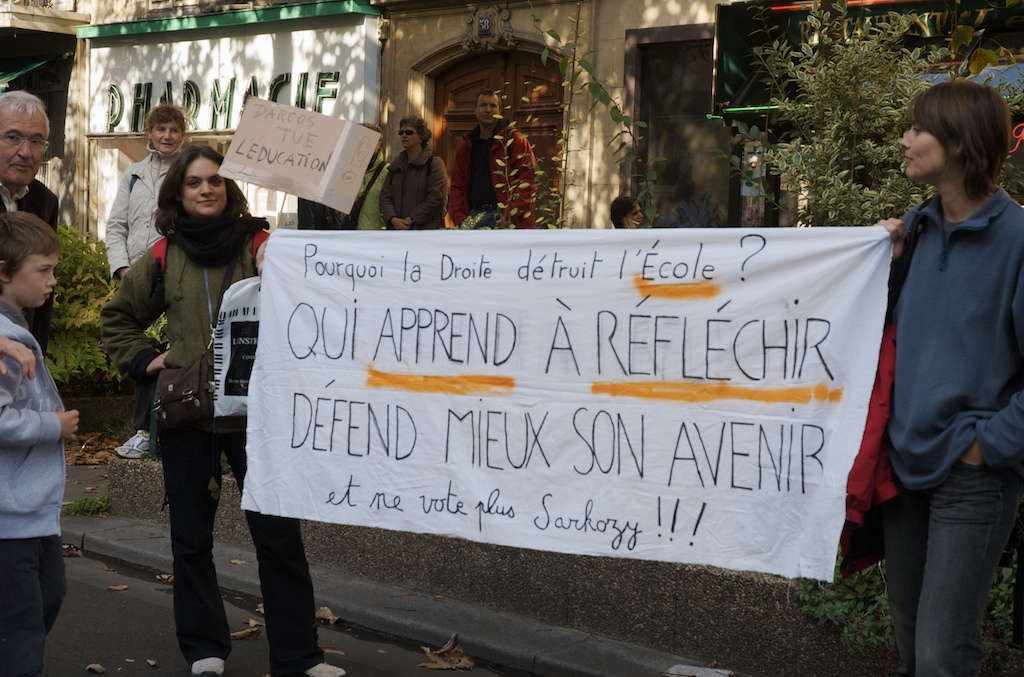 58
PHARMACIE
DARCOS
TUE
L'ÉDUCATION
Pourquoi la Droite détruit l'École ?
QUI APPREND À RÉFLÉCHIR
DÉFEND MIEUX SON AVENIR
et ne vote plus Sarkozy !!!